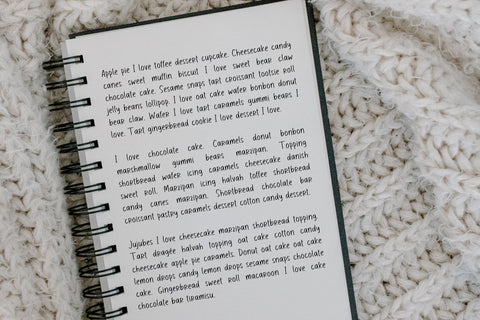 Apple pie I love toffee dessert cupcake. Cheesecake candy
canes sweet muffin biscuit I love sweet bear claw
chocolate cake. Sesame snaps tart croissant tootsie roll
jelly beans lollipop. I love oat cake wafer bonbon donut
bear claw. Wafer I love tart caramels gummi bears I
love. Tart gingerbread cookie I love dessert I love.
I love chocolate cake. Caramels donut bonbon
marshmallow gummi bears marzipan. Topping
shortbread wafer icing caramels cheesecake danish
sweet roll. Marzipan icing halvah toffee shortbread
candy canes marzipan. Shortbread chocolate bar
croissant pastry caramels dessert cotton candy dessert.
Jujubes I love cheesecake marzipan shortbread topping.
Tart dragée halvah topping oat cake cotton candy
cheesecake apple pie caramels. Donut oat cake oat cake
lemon drops candy lemon drops sesame snaps chocolate
cake. Gingerbread sweet roll macaroon I love cake
chocolate bar tiramisu.